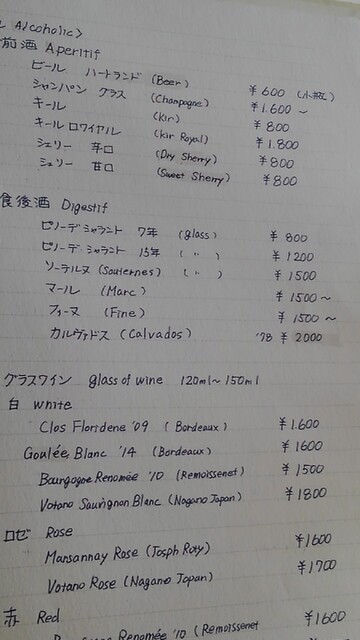 Alcoholic>
前酒 Aperitif
ビール ハートランド (Beer) ¥600 (小瓶)
シャンパン グラス (Champagne) ¥1.600~
キール (Kir) ¥800
キールロワイヤル (Kir Royal) ¥1.800
シェリー 辛口 (Dry Sherry) ¥800
シェリー 甘口 (Sweet Sherry) ¥800
食後酒 Digestif
ピノーデ シャラント 7年 (glass) ¥800
ピノーデ シャラント 15年 ( 〃 ) ¥1200
ソーテルヌ (Sauternes) ( 〃 ) ¥1500
マール (Marc) ¥1500~
フィーヌ (Fine) ¥1500~
カルヴァドス (Calvados) '78 ¥2000
グラスワイン glass of wine 120ml~150ml
白 White
Clos Floridene '09 (Bordeaux) ¥1.600
Goulée Blanc '14 (Bordeaux) ¥1600
Bourgogne Renomée '10 (Remoissenet) ¥1500
Votano Sauvignon Blanc (Nagano Japan) ¥1800
ロゼ Rose
Marsannay Rose (Josph Roty) ¥1600
Votano Rose (Nagano Japan) ¥1700
赤 Red
Renomée '10 (Remoissenet ¥1600